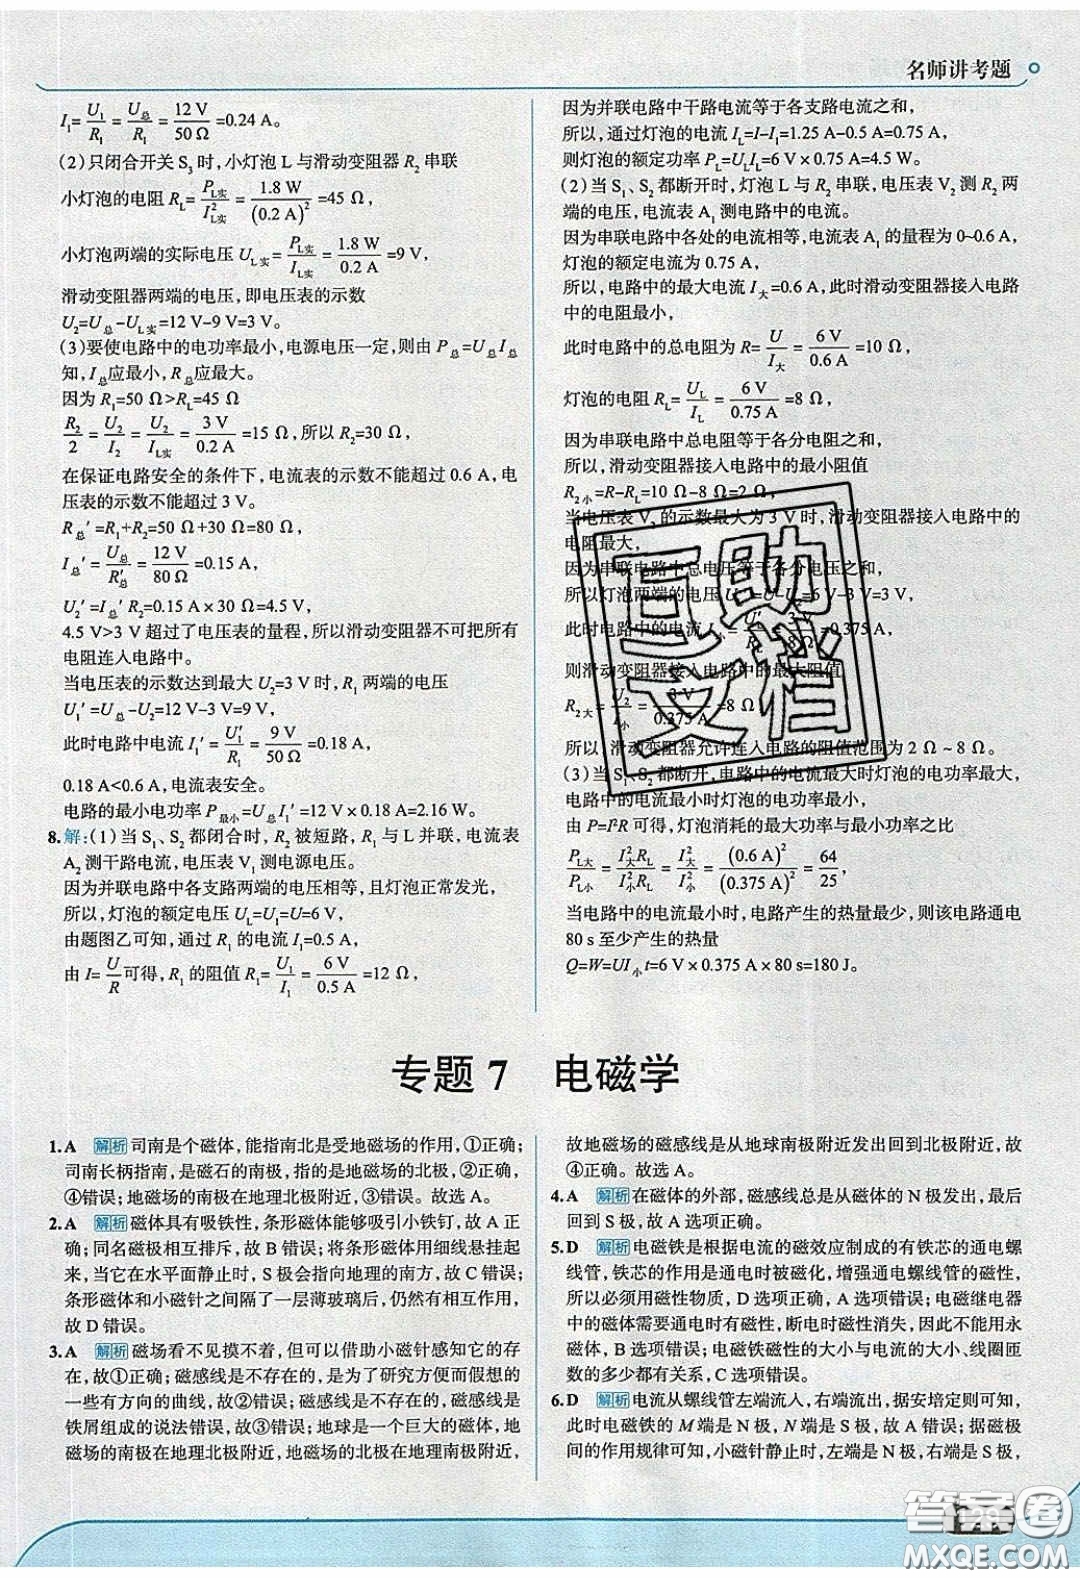 名师讲考题
I₁=U₁/R₁=U总/R₁=12 V/50 Ω=0.24 A。
(2)只闭合开关 S₃ 时,小灯泡 L 与滑动变阻器 R₂ 串联
小灯泡的电阻 R_L=P_L实/I²_L实=1.8 W/(0.2 A)²=45 Ω,
小灯泡两端的实际电压 U_L实=P_L实/I_L实=1.8 W/0.2 A=9 V,
滑动变阻器两端的电压,即电压表的示数
U₂=U总-U_L实=12 V-9 V=3 V。
(3)要使电路中的电功率最小,电源电压一定,则由 P总=U总I总
知,I总应最小,R总应最大。
因为 R₁=50 Ω>R_L=45 Ω
R₂/2=U₂/I₂=U₂/I_L实=3 V/0.2 A=15 Ω,所以 R₂=30 Ω,
在保证电路安全的条件下,电流表的示数不能超过 0.6 A,电
压表的示数不能超过 3 V。
R总′=R₁+R₂=50 Ω+30 Ω=80 Ω,
I总′=U总/R′总=12 V/80 Ω=0.15 A,
U₂′=I总′R₂=0.15 A×30 Ω=4.5 V,
4.5 V>3 V 超过了电压表的量程,所以滑动变阻器不可把所有
电阻连入电路中。
当电压表的示数达到最大 U₂=3 V 时,R₁ 两端的电压
U₁′=U总-U₂=12 V-3 V=9 V,
此时电路中电流 I₁′=U′₁/R₁=9 V/50 Ω=0.18 A,
0.18 A<0.6 A,电流表安全。
电路的最小电功率 P最小=U总I₁′=12 V×0.18 A=2.16 W。
8.解:(1)当 S₁、S₂ 都闭合时,R₂ 被短路,R₁ 与 L 并联,电流表
A₂ 测干路电流,电压表 V₁ 测电源电压。
因为并联电路中各支路两端的电压相等,且灯泡正常发光,
所以,灯泡的额定电压 U_L=U₁=U=6 V,
由题图乙可知,通过 R₁ 的电流 I₁=0.5 A,
由 I=U/R 可得,R₁ 的阻值 R₁=U₁/I₁=6 V/0.5 A=12 Ω,
因为并联电路中干路电流等于各支路电流之和,
所以,通过灯泡的电流 I_L=I-I₁=1.25 A-0.5 A=0.75 A,
则灯泡的额定功率 P_L=U_LI_L=6 V×0.75 A=4.5 W。
(2)当 S₁、S₂ 都断开时,灯泡 L 与 R₂ 串联,电压表 V₂ 测 R₂ 两
端的电压,电流表 A₁ 测电路中的电流。
因为串联电路中各处的电流相等,电流表 A₁ 的量程为 0~0.6 A,
灯泡的额定电流为 0.75 A,
所以,电路中的最大电流 I大=0.6 A,此时滑动变阻器接入电路
中的电阻最小,
此时电路中的总电阻为 R=U/I大=6 V/0.6 A=10 Ω,
灯泡的电阻 R_L=U_L/I_L=6 V/0.75 A=8 Ω,
因为串联电路中总电阻等于各分电阻之和,
所以,滑动变阻器接入电路中的最小阻值
R₂小=R-R_L=10 Ω-8 Ω=2 Ω,
当电压表 V₂ 的示数最大为 3 V 时,滑动变阻器接入电路中的
电阻最大,
因为串联电路中总电压等于各分电压之和,
所以灯泡两端的电压 U=U-U=6 V-3 V=3 V,
此时电路中的电流 I小=U′/R_L==0.375 A,
则滑动变阻器接入电路中的最大阻值
R₂大=U₂/I小=3 V/0.375 A=8 Ω
所以,滑动变阻器允许连入电路的阻值范围为 2 Ω~8 Ω。
(3)当 S₁、S₂ 都断开,电路中的电流最大时灯泡的电功率最大,
电路中的电流最小时灯泡的电功率最小,
由 P=I²R 可得,灯泡消耗的最大功率与最小功率之比
P_L大/P_L小=I²大R_L/I²小R_L=I²大/I²小=(0.6 A)²/(0.375 A)²=64/25,
当电路中的电流最小时,电路产生的热量最少,则该电路通电
80 s 至少产生的热量
Q=W=UI小t=6 V×0.375 A×80 s=180 J。
互助
文档
专题 7 电磁学
1.A 解析 司南是个磁体,能指南北是受地磁场的作用,①正确;
司南长柄指南,是磁石的南极,指的是地磁场的北极,②正确,
④错误;地磁场的南极在地理北极附近,③错误。故选 A。
2.A 解析 磁体具有吸铁性,条形磁体能够吸引小铁钉,故 A 正
确;同名磁极相互排斥,故 B 错误;将条形磁体用细线悬挂起
来,当它在水平面静止时,S 极会指向地理的南方,故 C 错误;
条形磁体和小磁针之间隔了一层薄玻璃后,仍然有相互作用,
故 D 错误。
3.A 解析 磁场看不见摸不着,但可以借助小磁针感知它的存
在,故①正确;磁感线是不存在的,是为了研究方便而假想的
一些有方向的曲线,故②错误;磁感线是不存在的,磁感线是
铁屑组成的说法错误,故③错误;地球是一个巨大的磁体,地
磁场的南极在地理北极附近,地磁场的北极在地理南极附近,
故地磁场的磁感线是从地球南极附近发出回到北极附近,故
④正确。故选 A。
4.A 解析 在磁体的外部,磁感线总是从磁体的 N 极发出,最后
回到 S 极,故 A 选项正确。
5.D 解析 电磁铁是根据电流的磁效应制成的有铁芯的通电螺
线管,铁芯的作用是通电时被磁化,增强通电螺线管的磁性,
所以必须用磁性物质,D 选项正确,A 选项错误;电磁继电器
中的磁体需要通电时有磁性,断电时磁性消失,因此不能用永
磁体,B 选项错误;电磁铁磁性的大小与电流的大小、线圈匝
数的多少都有关系,C 选项错误。
6.D 解析 电流从螺线管左端流入,右端流出,据安培定则可知,
此时电磁铁的 M 端是 N 极,N 端是 S 极,故 A 错误;据磁极
间的作用规律可知,小磁针静止时,左端是 N 极,右端是 S 极,
答案卷
MXQE.COM